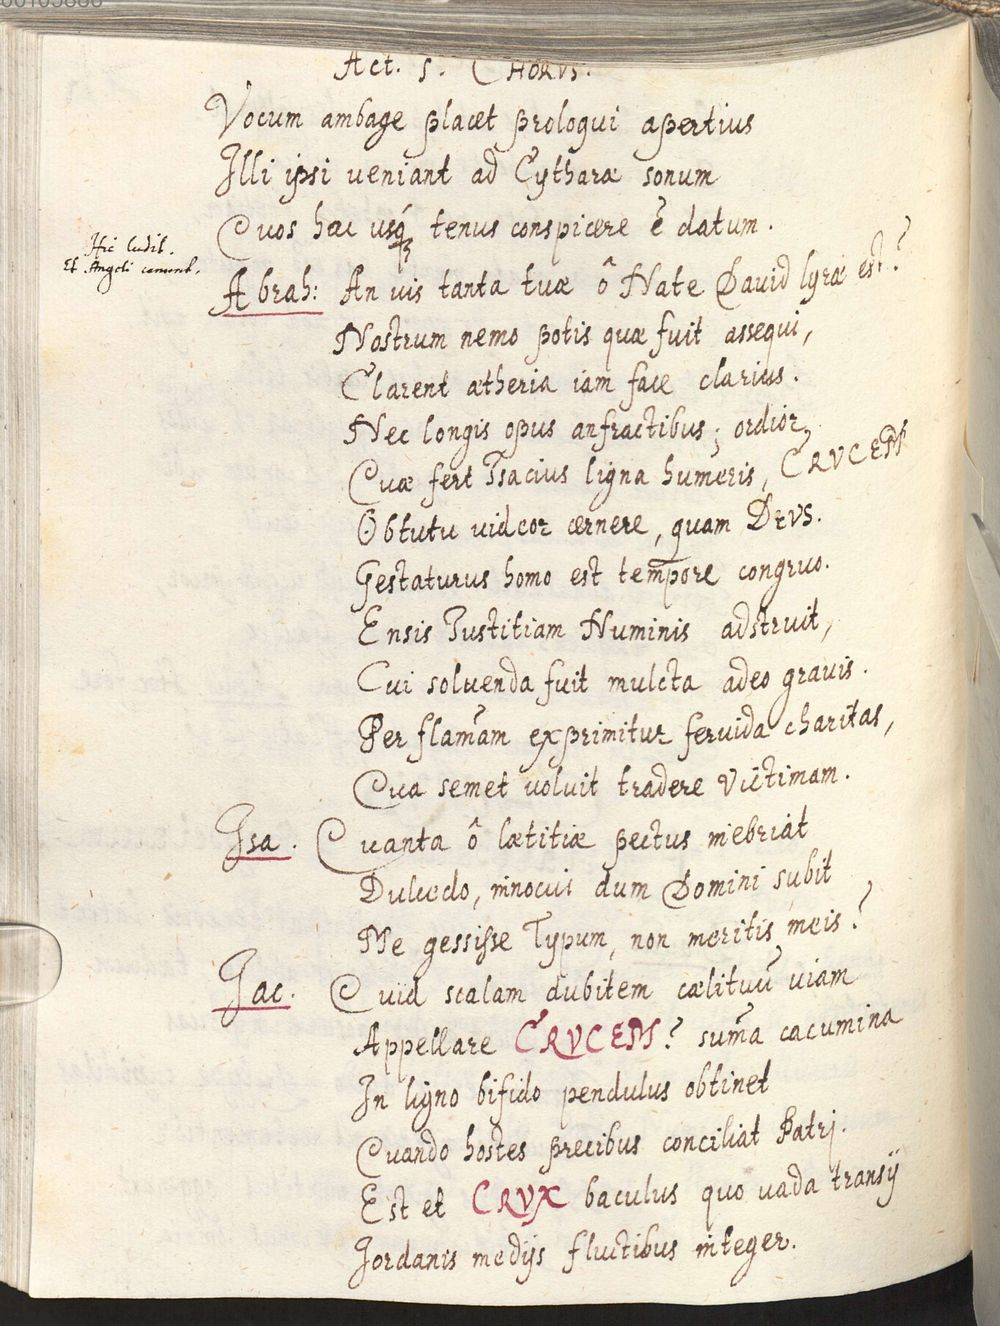 Act. 5. CHORVS.
Vocum ambage placet prologui apertius
Illi ipsi veniant ad Cytharæ sonum
Quos hac usq́ꝫ tenus conspicere ē datum.
Hic ludit.
Et Angeli canunt.
Abrah: An vis tanta tuæ ô Nate David lyræ est?
Nostrum nemo potis quæ fuit assequi,
Clarent ætheria iam face clarius.
Nec longis opus anfractibus; ordior,
Quæ fert Isacius ligna humeris, CRVCEM
Obtutu videor cernere, quam DEVS.
Gestaturus homo est tempore congruo.
Ensis Iustitiam Numinis adstruit,
Cui soluenda fuit mulcta adeo grauis.
Per flam̄am exprimitur feruida charitas,
Qua semet voluit tradere Victimam.
Isa. Quanta ô lætitiæ pectus inebriat
Dulcedo, innocui dum Domini subit
Me gessisse Typum, non meritis meis?
Jac. Quid scalam dubitem cælituū viam
Appellare CRVCEM? sum̄a cacumina
In ligno bifido pendulus obtinet
Quando hostes precibus conciliat Patrj.
Est et CRVX baculus quo vada transij
Jordanis medijs fluctibus integer.